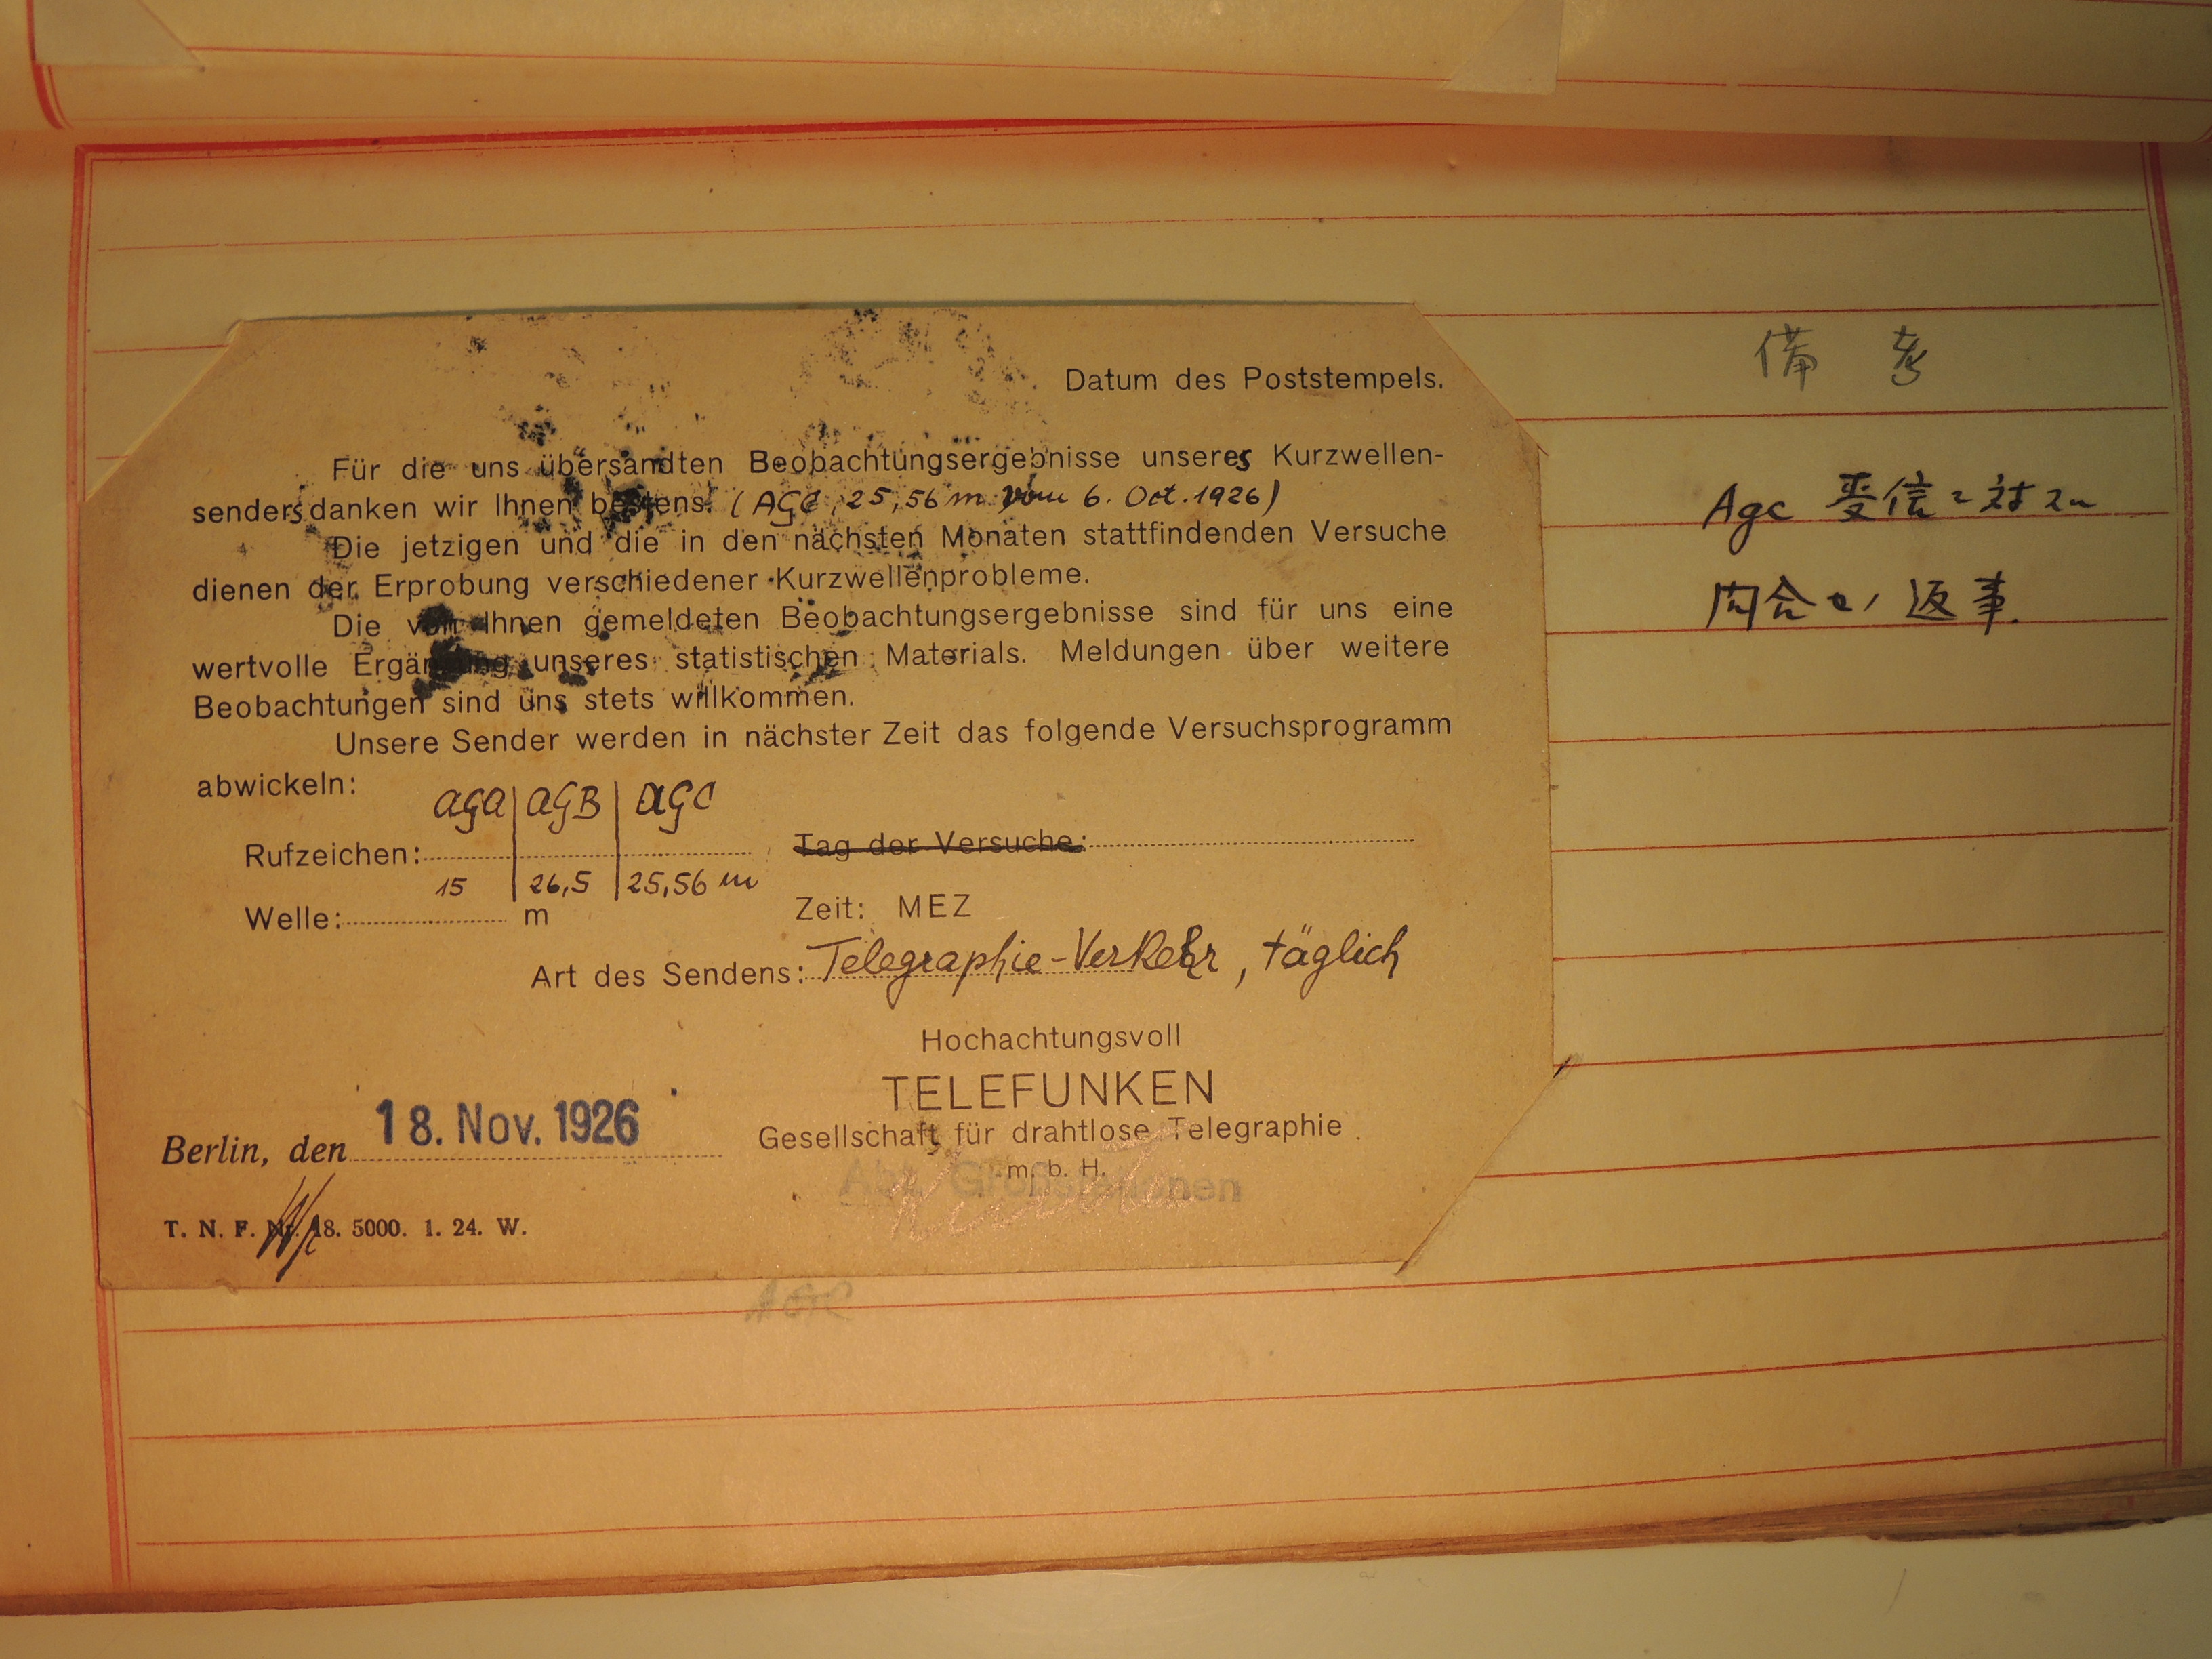 Datum des Poststempels.
Für die uns übersandten Beobachtungsergebnisse unseres Kurzwellen-
senders danken wir Ihnen bestens. (AGC, 25,56 m vom 6. Oct. 1926)
Die jetzigen und die in den nächsten Monaten stattfindenden Versuche
dienen der Erprobung verschiedener Kurzwellenprobleme.
Die von Ihnen gemeldeten Beobachtungsergebnisse sind für uns eine
wertvolle Ergänzung unseres statistischen Materials. Meldungen über weitere
Beobachtungen sind uns stets willkommen.
Unsere Sender werden in nächster Zeit das folgende Versuchsprogramm
abwickeln:
AGA | AGB | AGC
Rufzeichen:
Tag der Versuche:
15 | 26,5 | 25,56 m
Welle: m
Zeit: MEZ
Art des Sendens: Telegraphie-Verkehr, täglich
Hochachtungsvoll
TELEFUNKEN
Gesellschaft für drahtlose Telegraphie
m. b. H.
Abt. Großstationen
Berlin, den 18. Nov. 1926
T. N. F. Nr. 18. 5000. 1. 24. W.
AGC
備考
Agc 受信ニ対スル
問合セノ返事.